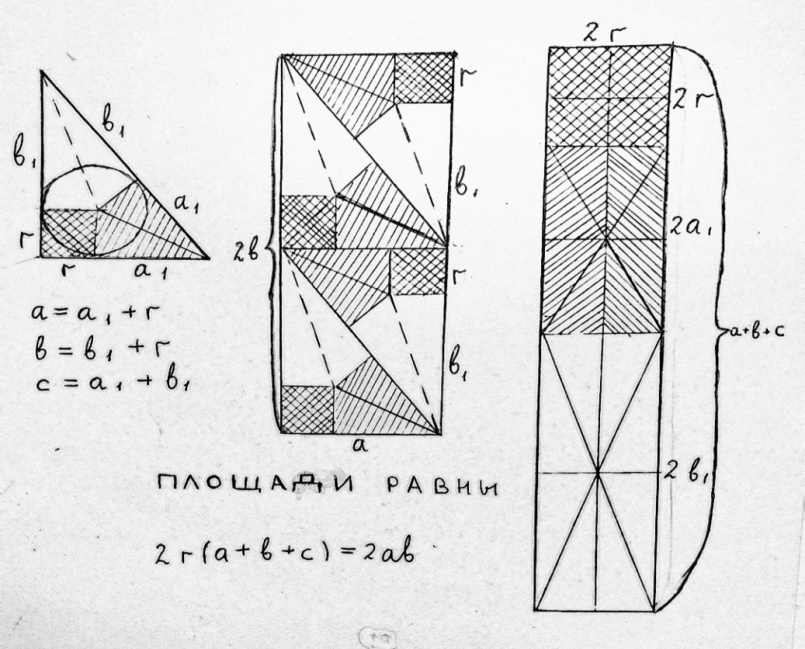 в₁
в₁
a₁
r
r
a₁
a = a₁ + r
в = в₁ + r
c = a₁ + в₁
r
в₁
2в
r
в₁
a
2 r
2 r
2a₁
a+в+c
2 в₁
ПЛОЩАДИ РАВНЫ
2 r (a + в + c) = 2aв